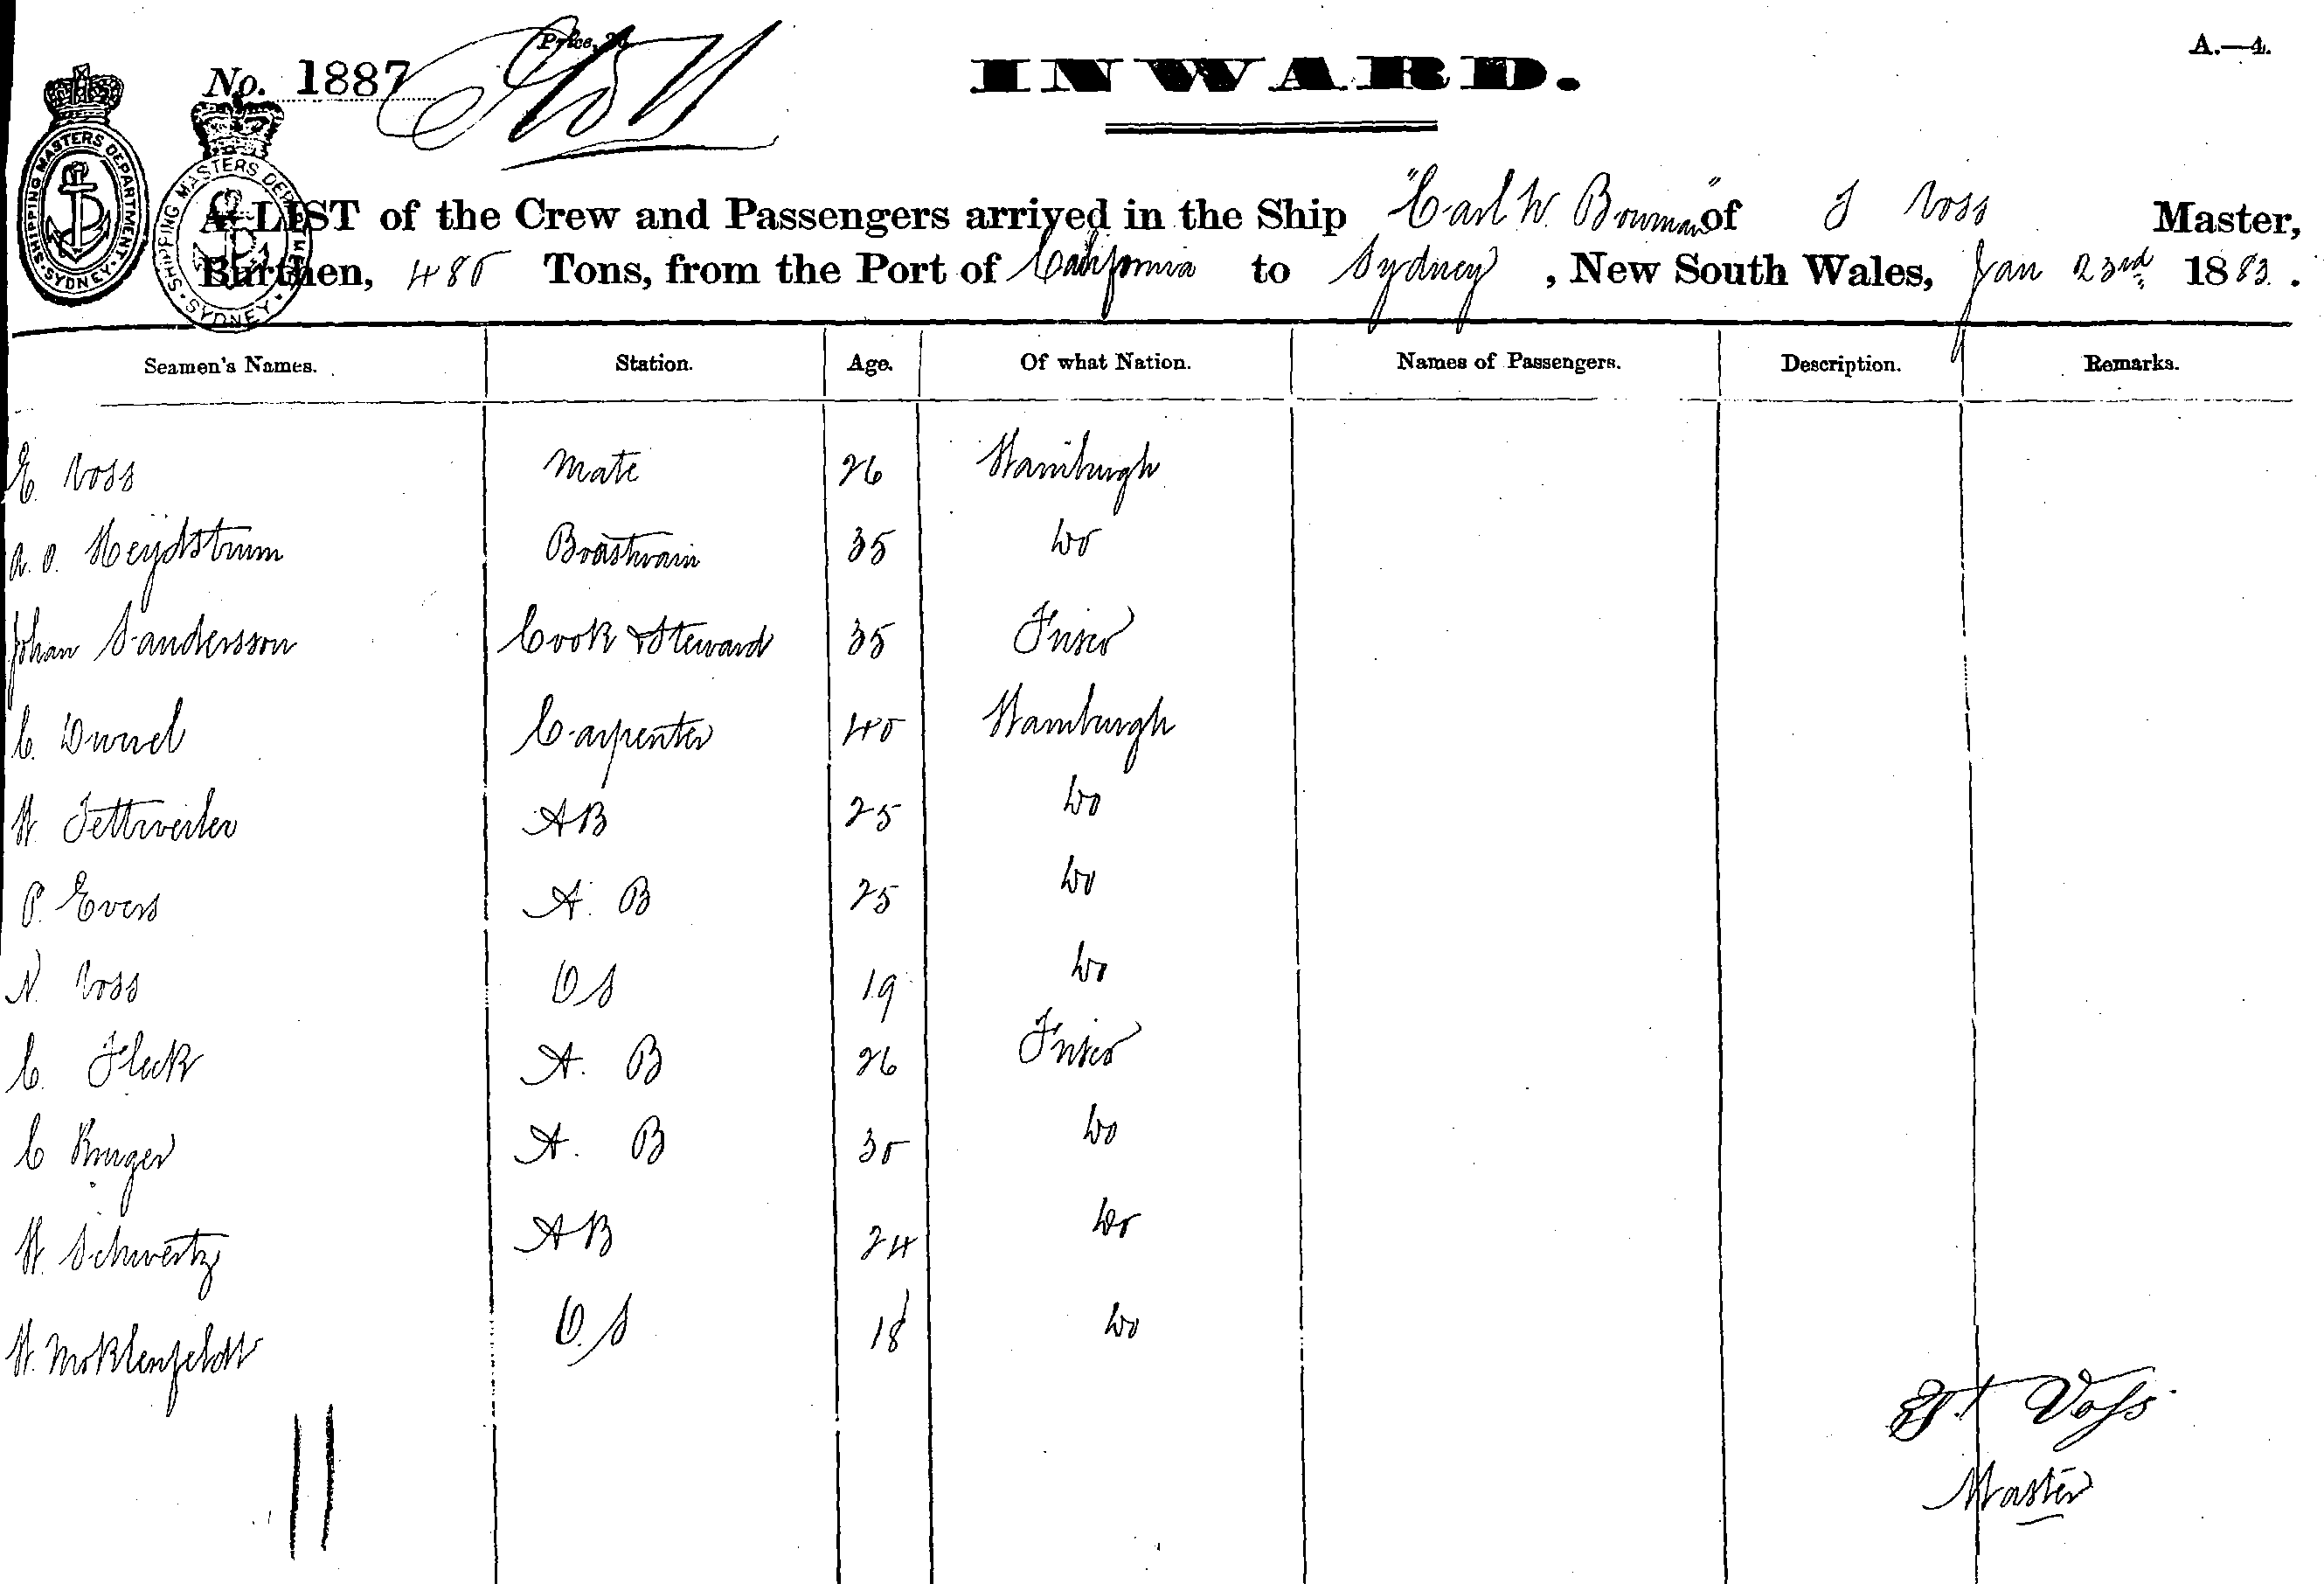 A.—4.
No. 1887
INWARD.
SHIPPING MASTERS DEPARTMENT SYDNEY
SHIPPING MASTERS DEPARTMENT SYDNEY
A LIST of the Crew and Passengers arrived in the Ship "Carl W. Bowman" of J Voss Master,
Burthen, 480 Tons, from the Port of California to Sydney, New South Wales, Jan 23rd 1883.
Seamen's Names. Station. Age. Of what Nation. Names of Passengers. Description. Remarks.
E. Voss Mate 26 Hamburgh
A. O. Heydstrum Boatswain 35 Do
Johan Sandersson Cook & Steward 35 Frisco
C. Carpenter 40 Hamburgh
H. Fettweiler AB 25 Do
P. Evers A. B 25 Do
N. Voss O S 19 Do
C. Fleck A. B 26 Frisco
C Kruger A. B 30 Do
H. Schwertz AB 24 Do
H. Moklenfeldt O. S 18 Do
11
Voss
Master